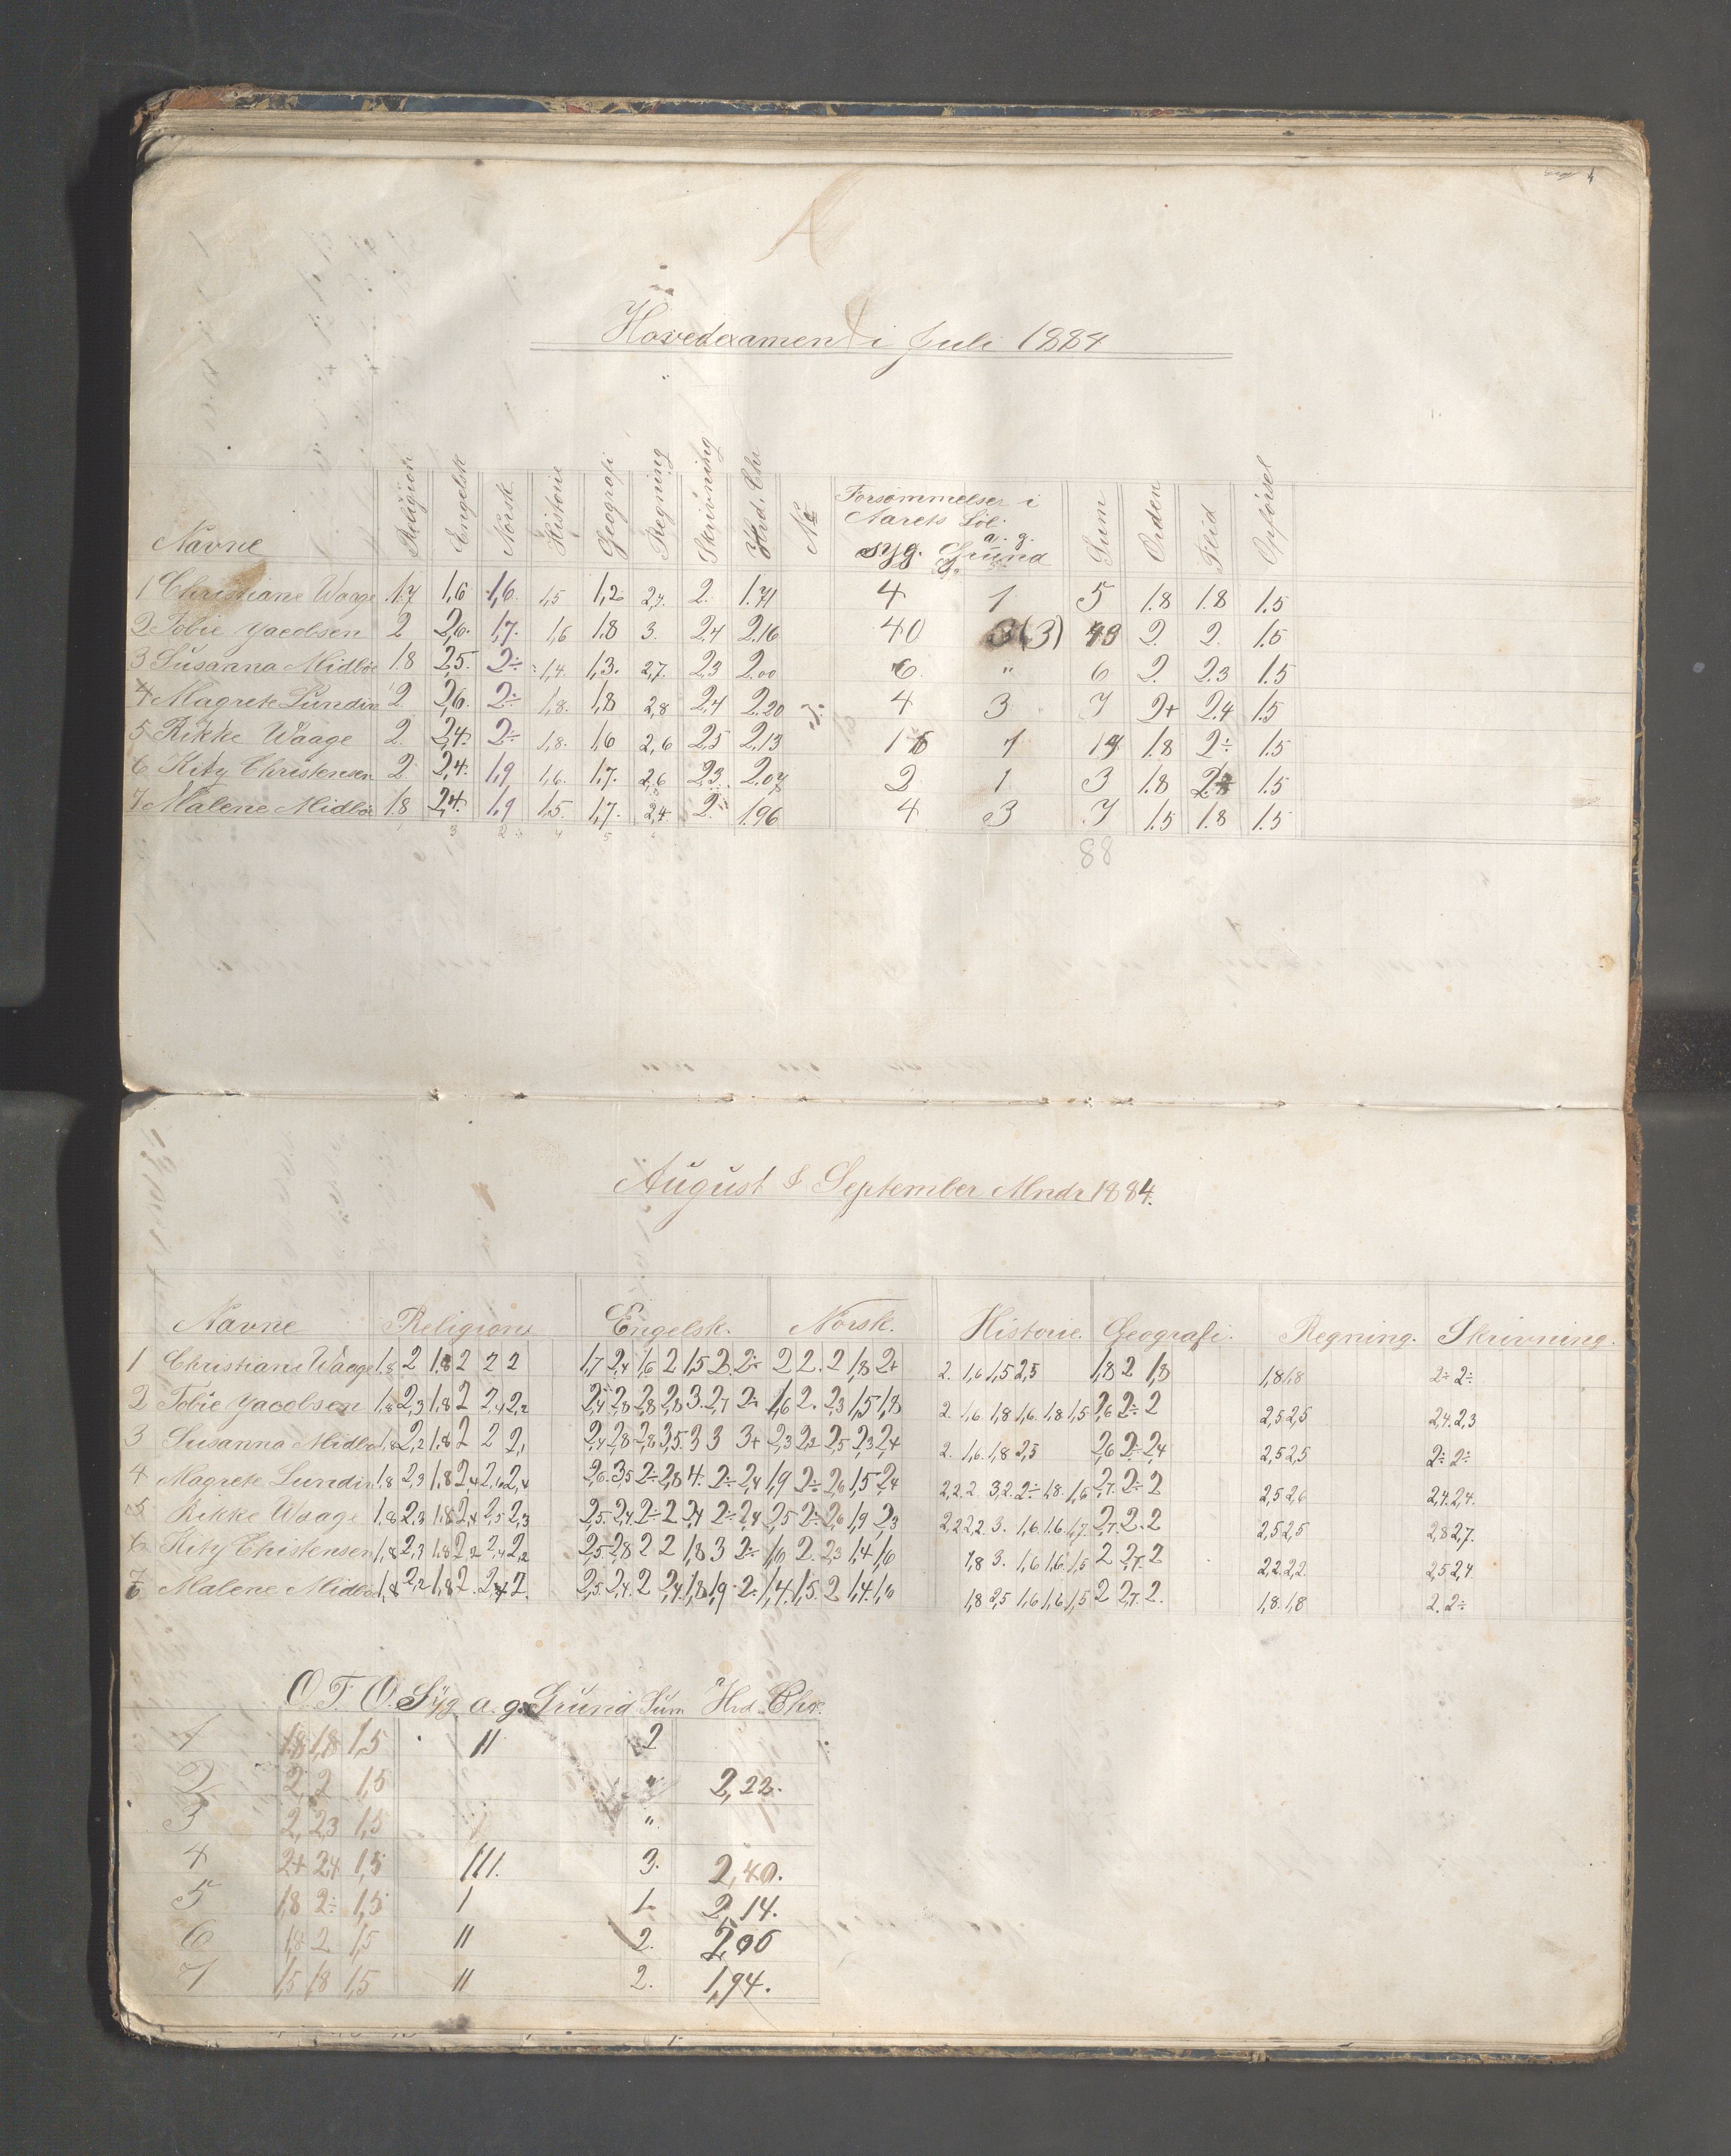 Hovedexamen i Juli 1884
Navne Religion Engelsk Norsk Historie Geografi Regning Skrivning Hvd. Chr No Forsømmelser i Aarets Löb. syg. a. g. Grund Sum Orden Flid Opførsel
1 Christiane Waage 1.7 1,6 1,6. 1,5 1,2 2,7. 2. 1.71 4 1 5 1.8 1.8 1.5
2 Tobie Yacobsen 2 2,6. 1,7. 1,6 1.8 3. 2.4 2.16 40 3(3) 43 2. 2. 1.5
3 Susanna Midbö 1.8 2,5. 2÷ 1,4. 1,3. 2,7. 2,3 2.00 6. " 6 2. 2.3 1.5
4 Magrete Lundin 2. 2,6. 2÷ 1,8. 1,8 2,8 2,4 2.20 4 3 7 2+ 2.4 1.5
5 Rikke Waage 2. 2,4. 2÷ 1,8. 1,6 2,6 2,5 2.13 1.8 2÷ 1.5
6 Kity Christensen 2. 2,4. 1,9 1,6. 1,7. 2,6 2,3. 2.07 2 1 3 1.8 1.5
7 Malene Midbö 1.8 2,4. 1,9 1,5. 1,7. 2,4 2. 1.96 4 3 7 1.5 1.8 1.5
88
August & September Mndr 1884.
Navne Religion Engelsk. Norsk. Historie. Geografi. Regning. Skrivning.
1 Christiane Waage 1,8 2 1,8 2 2 2 1,7 2,4 1,6 2 1,5 2. 2÷ 2 2. 2 1,8 2+ 2. 1,6 1,5 2,5 1,8 2 1,8 1,8 1,8 2÷ 2÷
2 Tobie Yacobsen 1,8 2,3 1,8 2 2,4 2,2 2,4 2,8 2,8 2,8 3. 2,7 2÷ 1,6 2. 2,3 1,5 1,8 2. 1,6. 1,8 1,6. 1,8 1,5 2,6 2÷ 2 2,5 2,5 2,4. 2,3
3 Susanna Midbö 1,8 2,2 1,8 2 2 2, 2,4 2,8 2,8 3,5. 3 3 3+ 2,3 2,2 2,5 2,3 2,4 2. 1,6. 1,8 2,5 2,6 2÷ 2,4 2,5 2,5 2÷ 2÷
4 Magrete Lundin 1,8 2,3 1,8 2,4 2,6 2,4 2,6. 3,5 2÷ 2,8 4. 2÷ 2,4 1,9 2÷ 2,6 1,5 2,4 2,2 2.2 3,2. 2÷ 1,8. 1,6 2,7. 2÷ 2 2,5 2,6 2,4 2,4.
5 Rikke Waage 1,8 2,3 1,8 2,4 2,5 2,3 2,5. 2,4. 2÷ 2 2,4 2÷ 2,4 2,5 2÷ 2,6 1,9 2,3 2,2 2,2,2. 3. 1,6. 1,6. 1,7. 2,7. 2. 2 2,5 2,5 2,8 2,7.
6 Kity Chistensen 1,8 2,3 1,8 2,2 2,4 2,2 2,5 2,8 2 2 1,8 3 2÷ 1,6 2. 2,3 1,4 1,6 1,8 3. 1,6 1,6 1,5 2 2,7. 2 2,2. 2,2. 2,5 2,4
7 Malene Midbö 1,8 2,2 1,8 2. 2,4 2. 2,5 2,4. 2 2,4. 1,8 1,9. 2. 1,4. 1,5. 2 1,4. 1,6 1,8 2,5 1,6 1,6 1,5 2 2,7. 2. 1,8. 1,8 2. 2÷
O. F. O. Syg a. g. Grund Sum Hvd. Chr.
1 1,8 1,8 1,5 11 2
2 2, 2 1,5 " 2,22.
3 2, 2,3 1,5 "
4 2+ 2,4 1,5 111. 3. 2,40.
5 1,8 2÷ 1,5 1 1 2,14.
6 1,8 2 1,5 11 2.
7 1,5 1,8 1,5 11 2. 1,94.